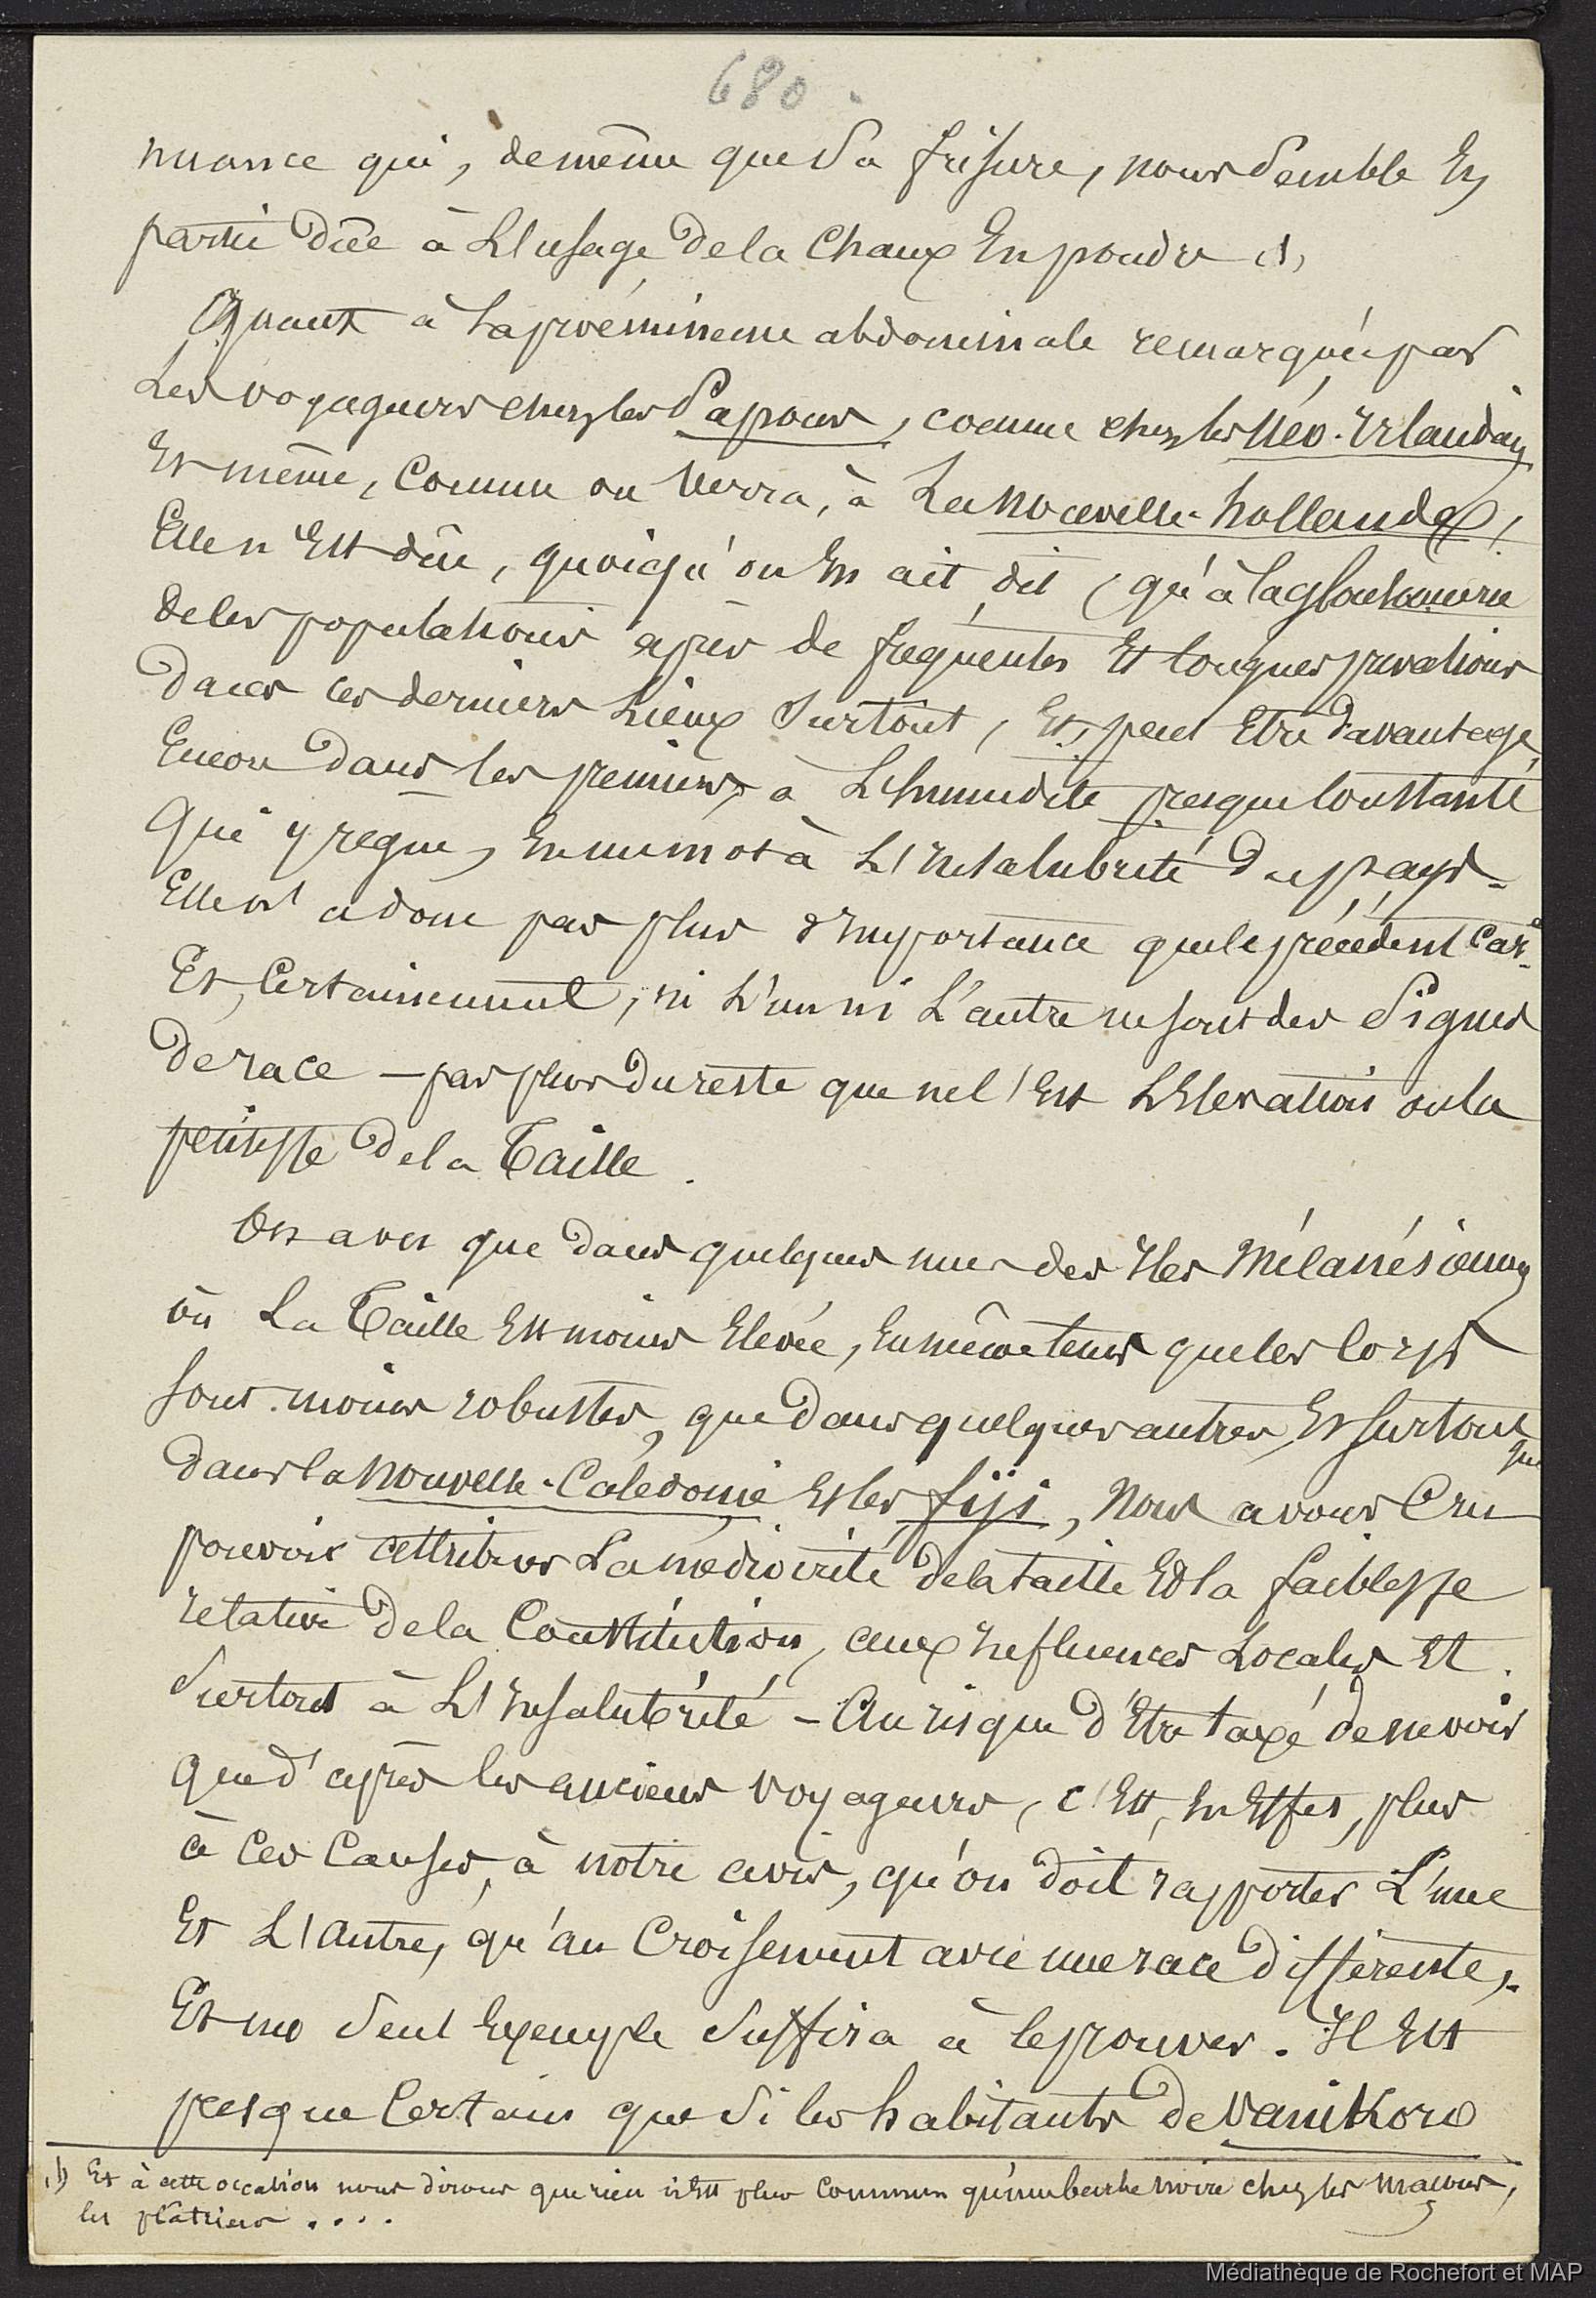 680.
nuance qui, de même que sa frisure, nous semble en
partie dûe à l'usage de la Chaux en poudre (1)
Quant à la proéminence abdominale remarquée par
les voyageurs chez les Papous, comme chez les Néo-Irlandais
et même, comme on verra, à la Nouvelle-hollande,
Elle n'est dûe, quoiqu'on en ait dit, qu'à la gloutonnerie
de les populations après de frequentes et longues privations
dans ces derniers lieux surtout, et, peut être davantage
encore dans les premiers, à l'humidité presque constante
qui y regne, en un mot à l'insalubrité du pays -
Elle n'a donc pas plus d'importance que le précédent car.
Et, Certainement, ni l'un ni l'autre ne sont des signes
de race - pas plus du reste que ne l'est l'élevation ou la
petitesse de la Taille.
On a vu que dans quelques unes des Iles Mélanésiennes
où la Taille est moins élevée, en même tems que les corps
sont moins robustes, que dans quelques autres, et surtout que
dans la Nouvelle-Calédonie et les fiji, nous avons cru
pouvoir attribuer la médiocrité de la taille et la faiblesse
relative de la Constitution, aux influences locales et
surtout à l'insalubrité - Au risque d'être taxé de ne voir
que d'après les anciens voyageurs, c'est, en effet, plus
à ces causes, à notre avis, qu'on doit rapporter l'une
et l'autre, qu'au Croisement avec une race différente,.
Et un seul exemple suffira à le prouver. Il est
presque Certain que si les habitants de Vanikoro
(1) Et à cette occasion nous dirons que rien n'est plus commun qu'une barbe noire chez les maçons,
les plâtriers ....
Médiathèque de Rochefort et MAP